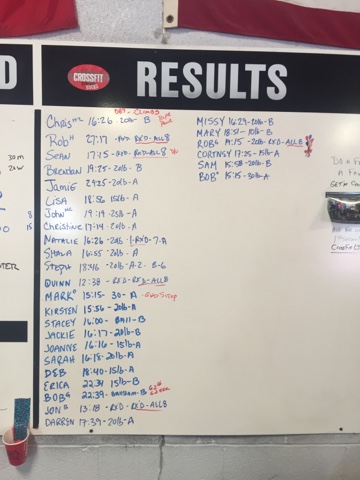 D
CROSSFIT
RESULTS
Chris 16:26 20lb - B
Rob 27:17 - RXD - RXD-ALL8
SEAN 17:15 - RXD-ALL8
BRENDAN 19:25 - 20lb - A
Jamie 24:25 - 20lb - A
LISA 18:56 15lb - A
John 19:19 - 25# - A
Christine 17:14 - 20lb - A
NATALIE 16:26 - 20lb 1-RXD-7-A
Shala 16:55 20lb - A
Steph 18:46 - 20lb - A-2 B-6
QUINN 12:38 - RXD - RXD-ALL8
MARK 15:15 - 30 - A
KIRSTEN 15:56 - 20lb - A
STACEY 16:00 - Ball - B
JACKIE 16:17 - 20lb - B
JOANNE 16:16 - 15lb - A
SARAH 16:18 - 20lb - A
DEB 18:40 - 15lb - A
ERICA 22:34 15lb - B
BOB 22:39 - B
JON 13:18 - RXD - RXD-ALL8
DARREN 17:39 - 20lb - A
MISSY 16:29 - 20lb - B
MARY 18:51 - 10lb - B
ROB 19:15 - 20lb - RXD-ALL8
CORTNSY 17:25 - 15lb - A
SAM 15:58 - 20lb - B
BOB 15:15 - 30lb - A
30 m
8
15